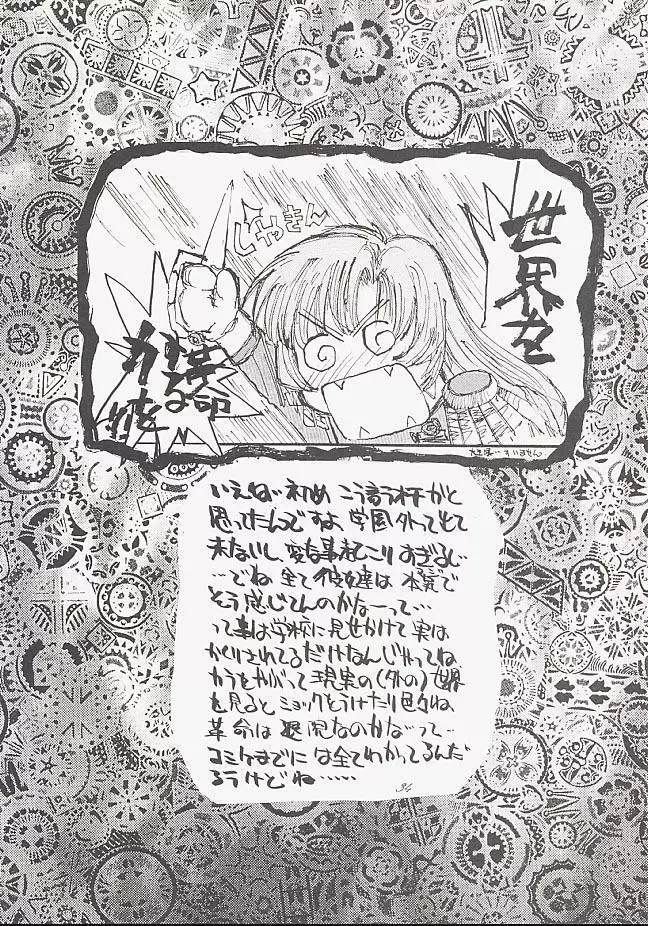 世界を
じゃきん
革命
する
力を
いえね 初め こう言う杯かと
思ってたんですよ 学園外って出て
来ないし 変な事起こりすぎるし…
…でね 全て彼女達は本気で
そう感じてんのかなーって…
って事は学校に見せかけて実は
かくりされてるだけなんじゃってね
だから 現実の(外の)世界
を見ると ショックをうけたり色々ね、
革命は退院なのかなって…
コミケまでには全てわかってるんだ
ろうけどね……
34